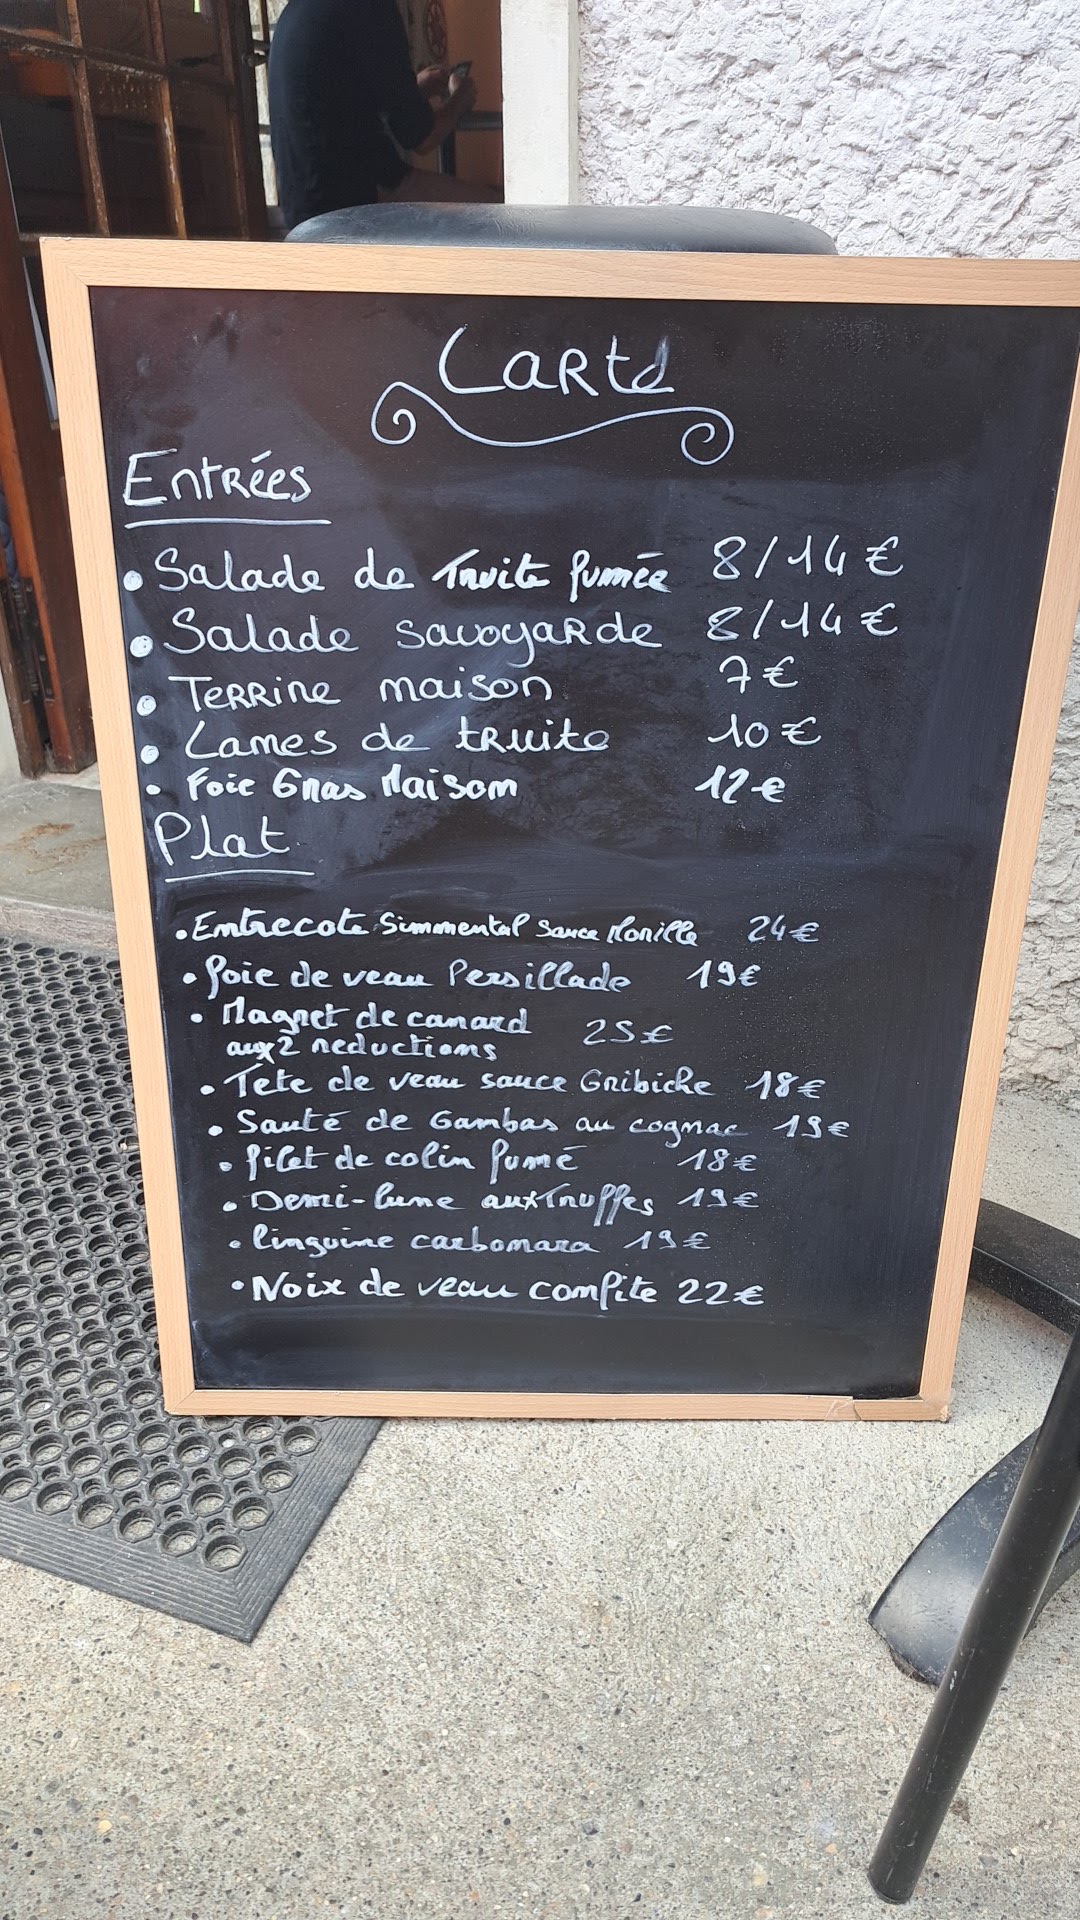 Carte
Entrées
• Salade de Truite fumée 8/14€
• Salade savoyarde 8/14€
• Terrine maison 7€
• Lames de truite 10€
• Foie Gras Maison 12€
Plat
• Entrecote Simmental sauce Morille 24€
• foie de veau Persillade 19€
• Magret de canard 25€
aux 2 reductions
• Tete de veau sauce Gribiche 18€
• Sauté de Gambas au cognac 19€
• filet de colin fumé 18€
• Demi-lune aux Truffes 19€
• linguine carbonara 19€
• Noix de veau confite 22€